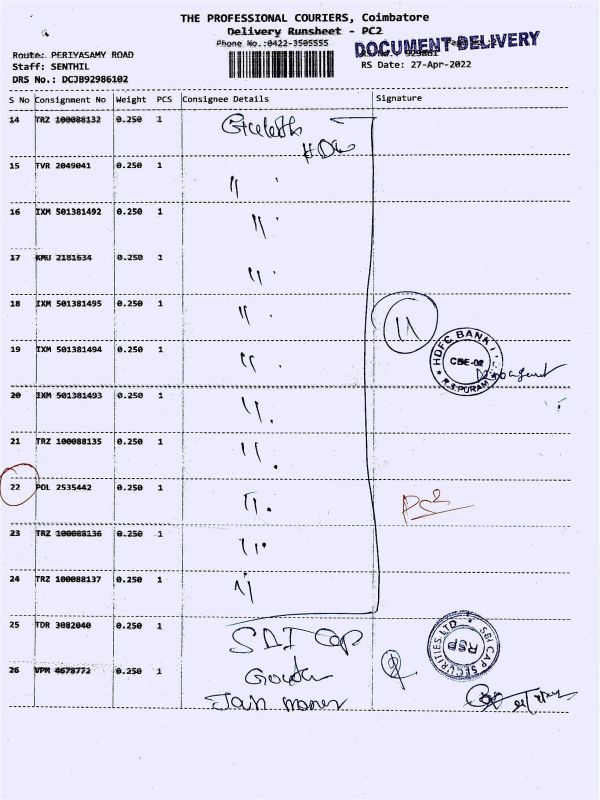 THE PROFESSIONAL COURIERS, Coimbatore
Delivery Runsheet - PC2
Phone No.:0422-3505555
DOCUMENT DELIVERY
Route: PERIYASAMY ROAD
Staff: SENTHIL
RS Date: 27-Apr-2022
DRS No.: DCJB92986102
S No Consignment No Weight PCS Consignee Details Signature
14 TRZ 100088132 0.250 1
15 TVR 2049041 0.250 1 "
16 IXM 501381492 0.250 1 "
17 KMU 2181634 0.250 1 "
18 IXM 501381495 0.250 1 " 11
19 IXM 501381494 0.250 1 " HDFC BANK CBE-02 R.S.PURAM
20 IXM 501381493 0.250 1 "
21 TRZ 100088135 0.250 1 "
22 POL 2535442 0.250 1 " PC2
23 TRZ 100088136 0.250 1 "
24 TRZ 100088137 0.250 1 "
25 TDR 3082040 0.250 1 SBI Cap SBI CAP SECURITIES LTD RSP
26 VPM 4678772 0.250 1